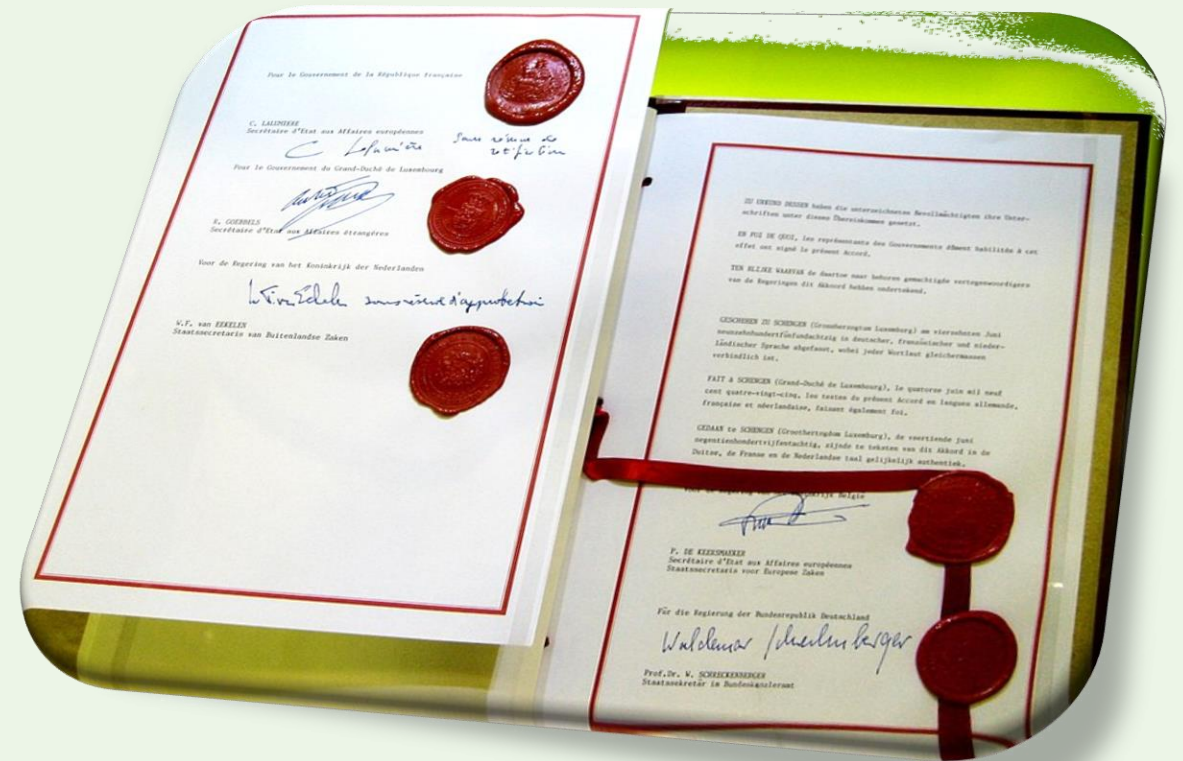 Pour le Gouvernement de la République Française
C. LALUMIERE
Secrétaire d'Etat aux Affaires européennes
C Lalumière
Sous réserve de
ratification
Pour le Gouvernement du Grand-Duché de Luxembourg
R. GOEBBELS
Secrétaire d'Etat aux Affaires étrangères
Voor de Regering van het Koninkrijk der Nederlanden
sous réserve d'approbation
W.F. van EEKELEN
Staatssecretaris van Buitenlandse Zaken
ZU URKUND DESSEN haben die unterzeichneten Bevollmächtigten ihre Unter-
schriften unter dieses Übereinkommen gesetzt.
EN FOI DE QUOI, les représentants des Gouvernements dûment habilités à cet
effet ont signé le présent Accord.
TEN BLIJKE WAARVAN de daartoe naar behoren gemachtigde vertegenwoordigers
van de Regeringen dit Akkoord hebben ondertekend.
GESCHEHEN ZU SCHENGEN (Grossherzogtum Luxemburg) am vierzehnten Juni
neunzehnhundertfünfundachtzig in deutscher, französischer und nieder-
ländischer Sprache abgefasst, wobei jeder Wortlaut gleichermassen
verbindlich ist.
FAIT à SCHENGEN (Grand-Duché de Luxembourg), le quatorze juin mil neuf
cent quatre-vingt-cinq, les textes du présent Accord en langues allemande,
française et néerlandaise, faisant également foi.
GEDAAN te SCHENGEN (Groothertogdom Luxemburg), de veertiende juni
negentienhondertvijfentachtig, zijnde te teksten van dit Akkord in de
Duitse, de Franse en de Nederlandse taal gelijkelijk authentiek.
Voor de Regering van België
P. DE KEERSMAEKER
Secrétaire d'Etat aux Affaires européennes
Staatssecretaris voor Europese Zaken
Für die Regierung der Bundesrepublik Deutschland
Waldemar Schreckenberger
Prof.Dr. W. SCHRECKENBERGER
Staatssekretär im Bundeskanzleramt